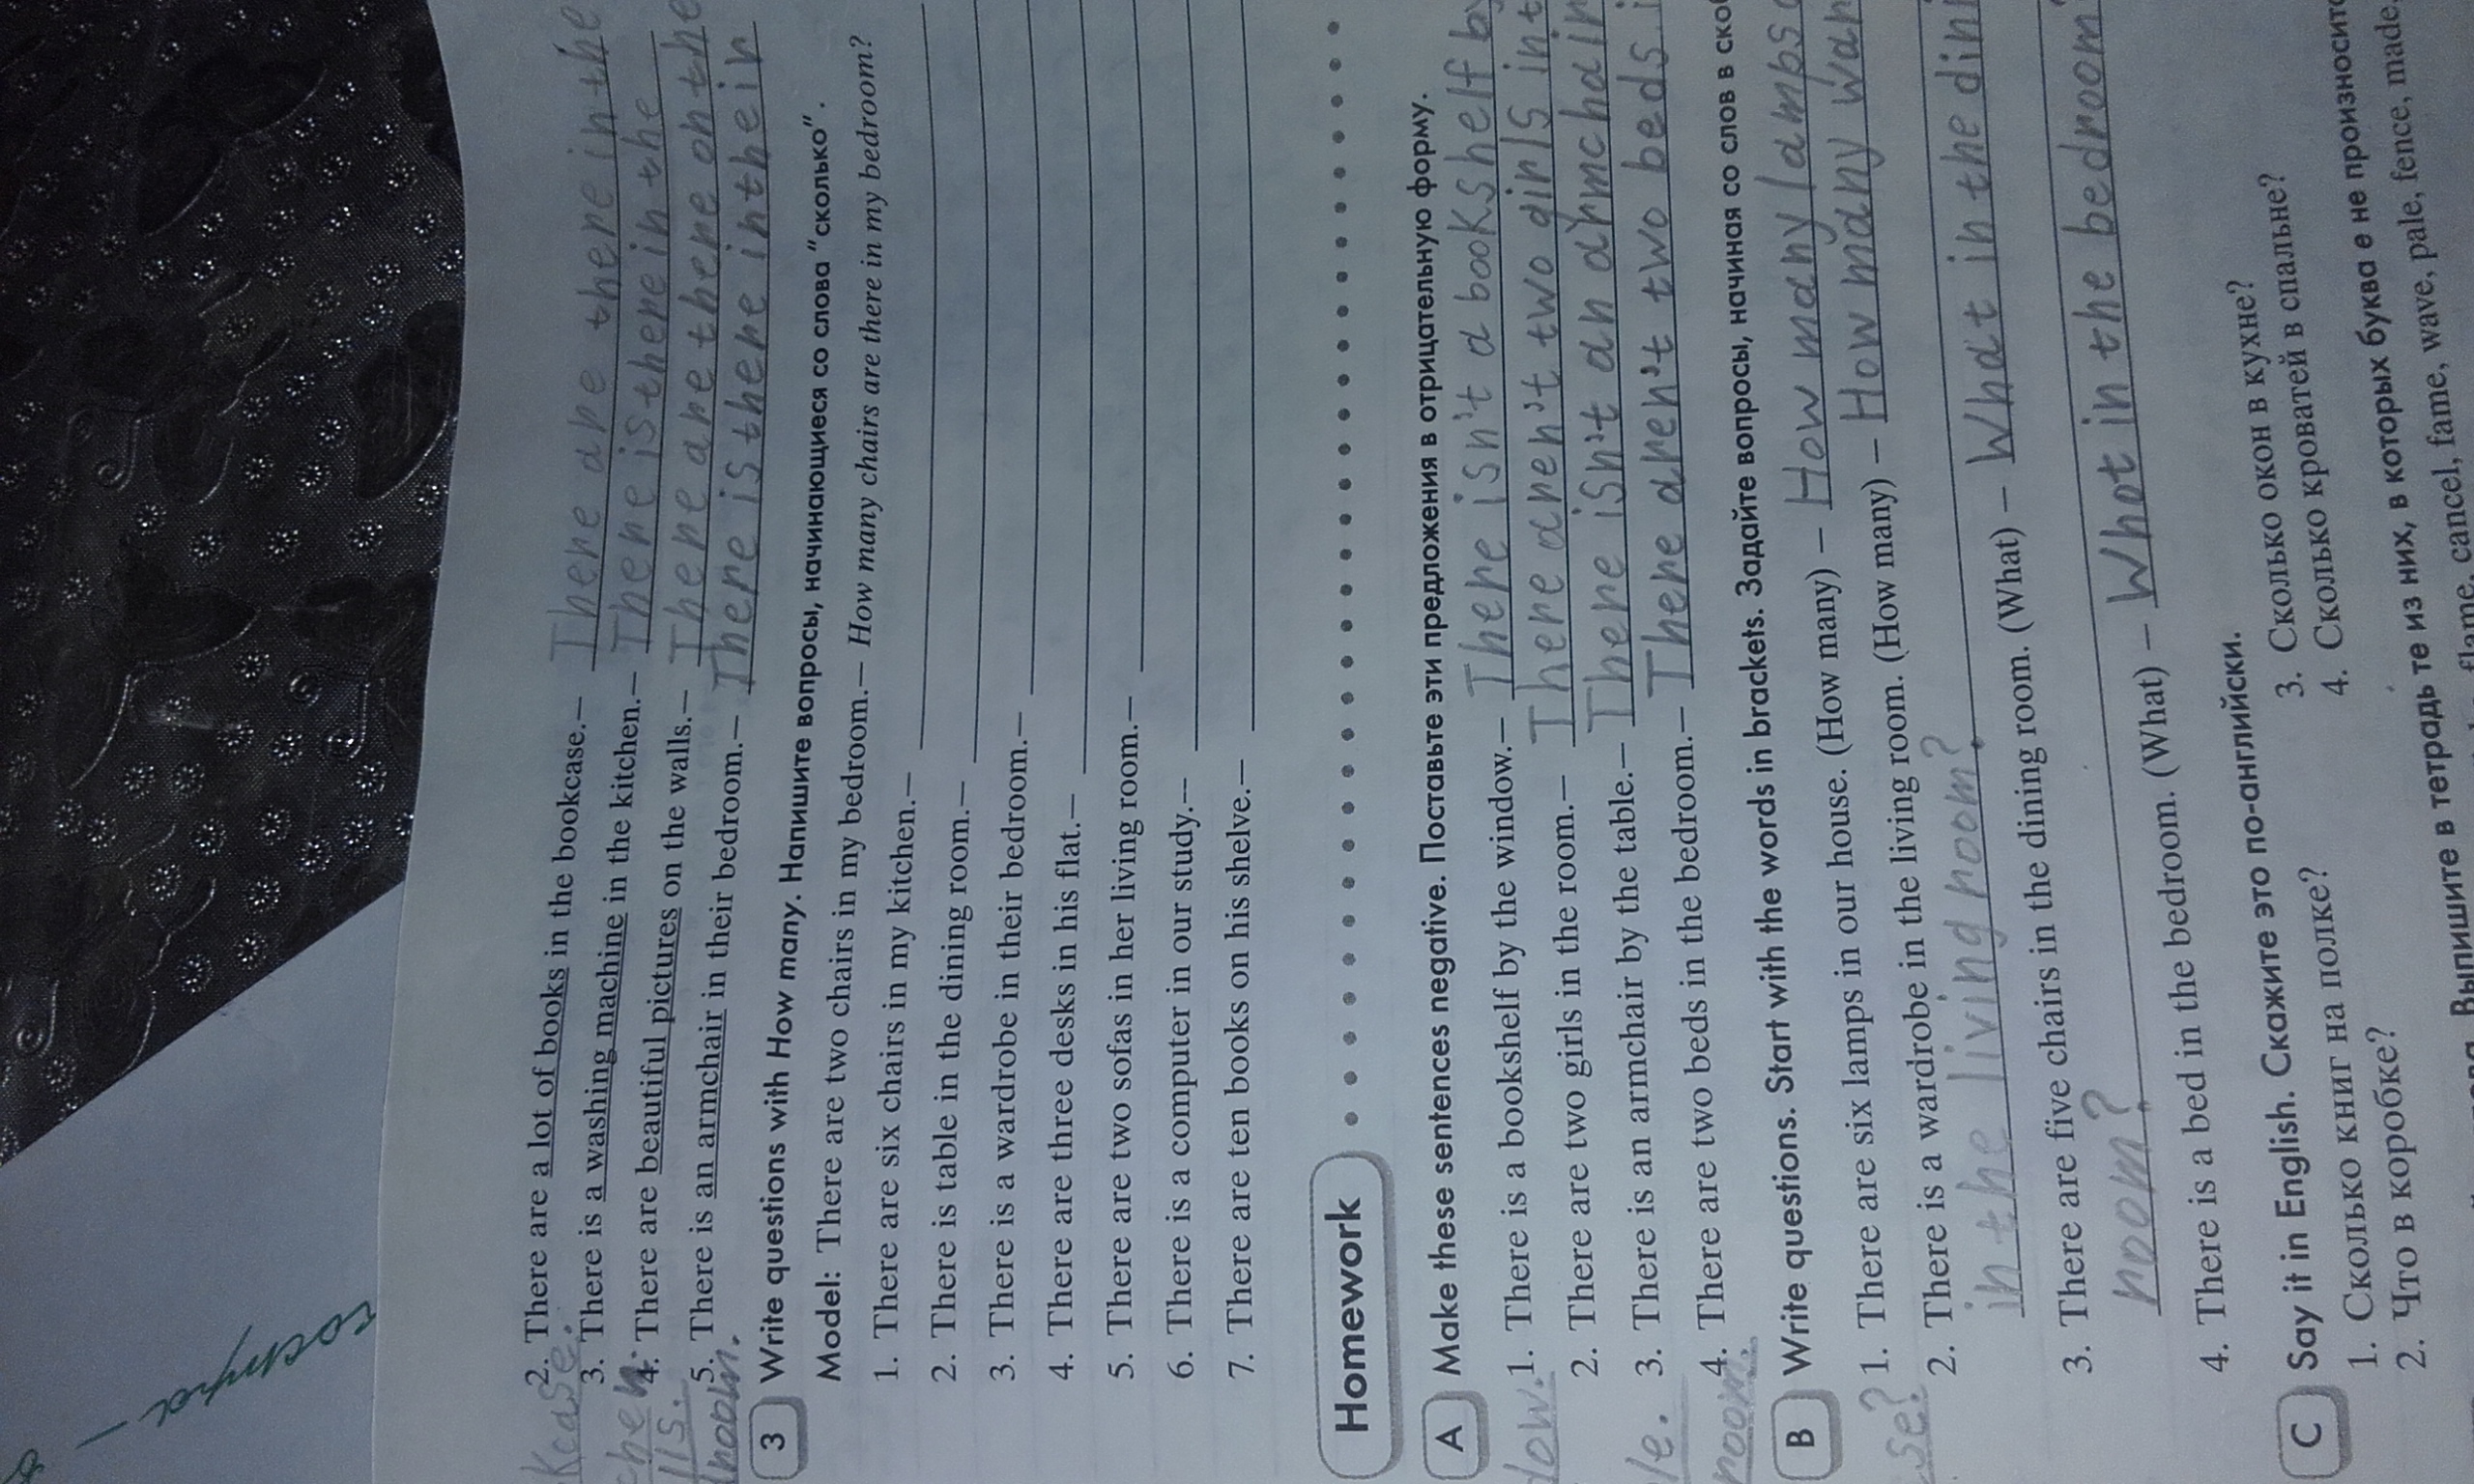 2. There are a lot of books in the bookcase.– There are there in the
kcase.
3. There is a washing machine in the kitchen.– There is there in the
chen.
4. There are beautiful pictures on the walls.– There are there on the
lls.
5. There is an armchair in their bedroom.– There is there in their
room.
3 Write questions with How many. Напишите вопросы, начинающиеся со слова "сколько".
Model: There are two chairs in my bedroom.– How many chairs are there in my bedroom?
1. There are six chairs in my kitchen.–
2. There is table in the dining room.–
3. There is a wardrobe in their bedroom.–
4. There are three desks in his flat.–
5. There are two sofas in her living room.–
6. There is a computer in our study.–
7. There are ten books on his shelve.–
Homework
A Make these sentences negative. Поставьте эти предложения в отрицательную форму.
1. There is a bookshelf by the window.– There isn't a bookshelf by
dow.
2. There are two girls in the room.– There aren't two girls in t
3. There is an armchair by the table.– There isn't an armchair
le.
4. There are two beds in the bedroom.– There aren't two beds i
room.
B Write questions. Start with the words in brackets. Задайте вопросы, начиная со слов в ско
1. There are six lamps in our house. (How many) – How many lamps
se?
2. There is a wardrobe in the living room. (How many) – How many war
in the living room?
3. There are five chairs in the dining room. (What) – What in the din
room?
4. There is a bed in the bedroom. (What) – What in the bedroom
C Say it in English. Скажите это по-английски.
1. Сколько книг на полке?
2. Что в коробке?
3. Сколько окон в кухне?
4. Сколько кроватей в спальне?
Выпишите в тетрадь те из них, в которых буква е не произносит
flame, cancel, fame, wave, pale, fence, made,